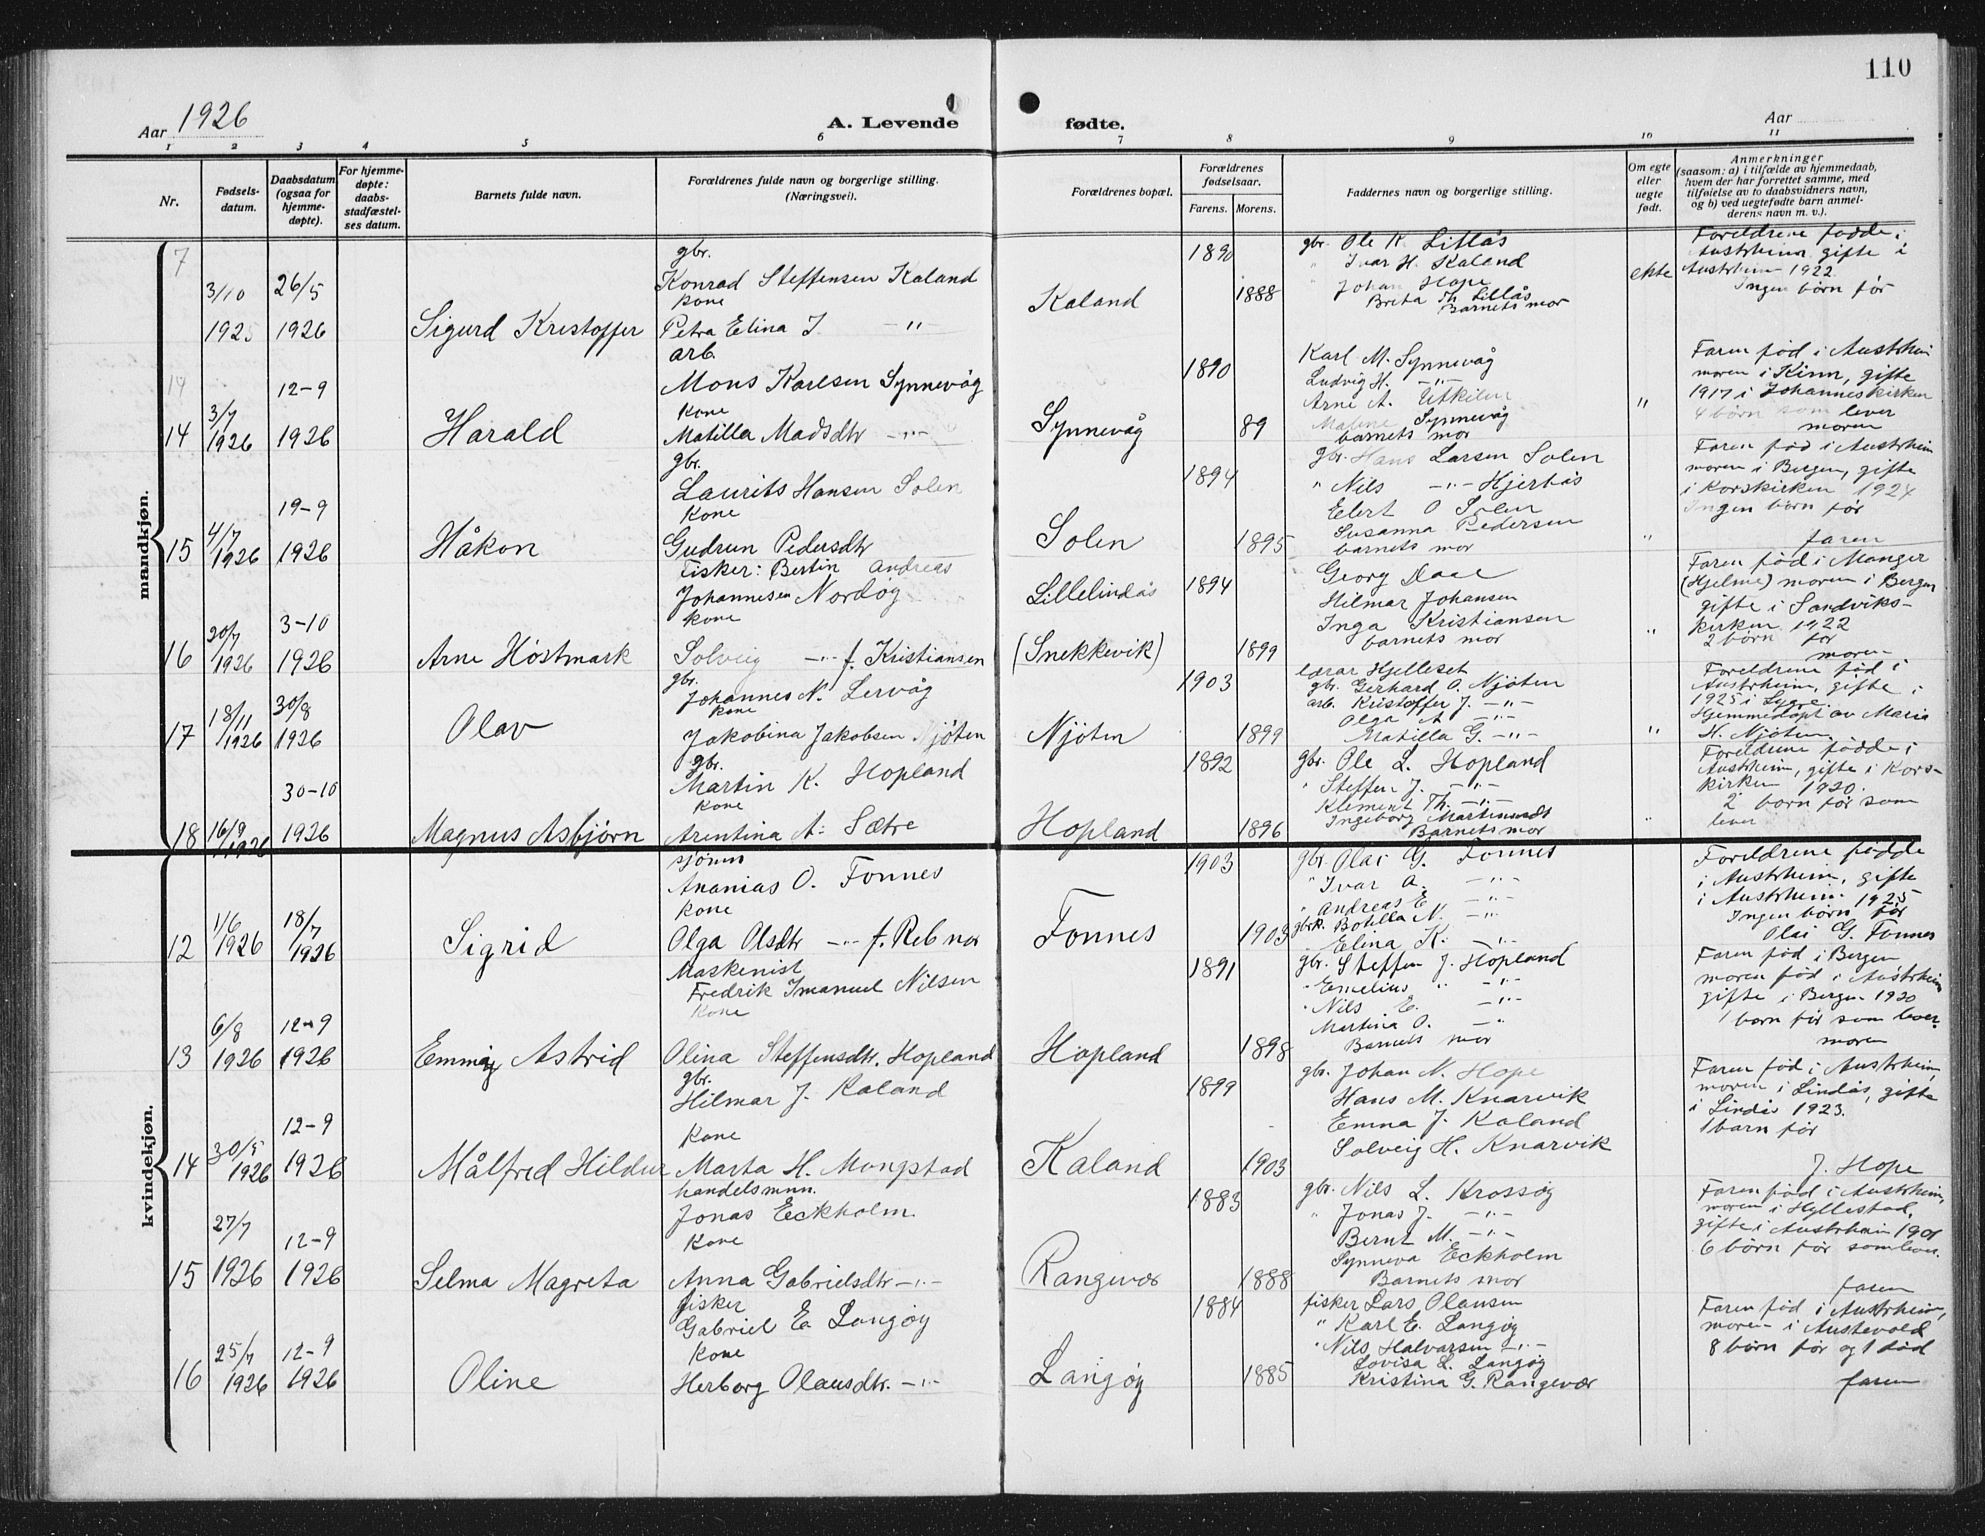 110
Aar 1926
A. Levende
fødte.
Aar
1 2 3 4 5 6 7 8 9 10 11
Nr.
Fødsels-
datum.
Daabsdatum
(ogsaa for
hjemme-
døpte).
For hjemme-
døpte:
daabs-
stadfæstel-
ses datum.
Barnets fulde navn.
Forældrenes fulde navn og borgerlige stilling.
(Næringsvei).
Forældrenes bopæl.
Forældrenes
fødselsaar.
Farens. Morens.
Faddernes navn og borgerlige stilling.
Om egte
eller
uegte
født.
Anmerkninger
(saasom: a) i tilfælde av hjemmedaab,
hvem der har forrettet samme, med
tilføielse av to daabsvidners navn,
og b) ved uegtefødte barn anmel-
derens navn m. v.).
mandkjøn.
7
3/10
1925
26/5
1926
Sigurd Kristoffer
gbr.
Konrad Steffensen Kaland
kone
Petra Elina J. —"—
Kaland
1890
1888
gbr. Ole K. Lillås
" Ivar H. Kaland
" Johan Hope
Breta Th. Lillås
Barnets mor
ekte
Foreldrene fødde i
Austrheim gifte i
Austrheim 1922
Ingen børn før
14
14
3/7
1926
12-9
1926
Harald
arb.
Mons Karlsen Synnevåg
kone
Matilla Madsdtr —"—
Synnevåg
1890
89
Karl M. Synnevåg
Ludvig H. —"—
Arne A. Utkilen
Malene Synnevåg
barnets mor
"
Faren fød i Austrheim
moren i Kinn, gifte
1917 i Johanneskirken
4 børn som lever
moren
15
4/7
1926
19-9
1926
Håkon
gbr.
Laurits Hansen Solen
kone
Gudrun Pedersdtr
Solen
1894
1895
gbr. Hans Larsen Solen
" Nils —"— Hjertås
Elert O Solen
Susanna Pedersen
barnets mor
"
Faren fød i Austrheim
moren i Bergen, gifte
i Korskirken 1924
Ingen børn før
faren
16
20/7
1926
3-10
1926
Arne Høstmark
Fisker: Bertin Andreas
Johannesen Nordøy
kone
Solveig —"— f. Kristiansen
Lillelindås
(Snekkevik)
1894
1899
Georg Daae
Hilmar Johansen
Inga Kristiansen
barnets mor
"
Faren fød i Manger
(Hjelme) moren i Bergen
gifte i Sandviks-
kirken 1922
2 børn før
moren
17
18/11
1926
30/8
1926
Olav
gbr.
Johannes N. Lervåg
kone
Jakobina Jakobsen Njøten
Njøten
1903
1899
lærar Hjelleset
gbr. Gerhard O. Njøten
arb. Kristoffer J. —"—
Olga A —"—
Matilla G. —"—
"
Foreldrene fød i
Austrheim, gifte i
1925 i Lygre.
Hjemmedøpt av Maria
H. Njøten.
18
16/9
1926
30-10
1926
Magnus Asbjørn
gbr.
Martin K. Hopland
kone
Arentina A. Sætre
Hopland
1892
1896
gbr. Ole L. Hopland
" Steffen J. —"—
Klement Th. —"—
Ingeborg Martinusdt
Barnets mor
"
Foreldrene fødde i
Austrheim, gifte i Kors-
kirken 1920.
2 børn før som
lever
kvindekjøn.
12
1/6
1926
18/7
1926
Sigrid
sjømn
Ananias O. Fonnes
kone
Olga Olsdtr —"— f. Rebnor
Fonnes
1903
1903
gbr. Olai G. Fonnes
" Ivar A. —"—
" Andreas E —"—
gbrk. Botilla N. —"—
Elina K. —"—
Foreldrene fødde
i Austrheim, gifte
i Austrheim 1925
Ingen børn før
Olai G. Fonnes
13
6/8
1926
12-9
1926
Emmy Astrid
Maskenist
Fredrik Imanuel Nilsen
kone
Olina Steffensdtr. Hopland
Hopland
1891
1898
gbr. Steffen J. Hopland
" Emelius " —"—
" Nils E. —"—
Martina O. —"—
Barnets mor
Faren fød i Bergen
moren fød i Austrheim
gifte i Bergen 1920
1 barn før som lever.
moren
14
30/5
1926
12-9
1926
Målfred Hildur
gbr.
Hilmar J. Kaland
kone
Marta H. Mongstad
Kaland
1899
1903
gbr. Johan N. Hope
Hans M. Knarvik
Emma J. Kaland
Solveig H. Knarvik
Faren fød i Austrheim,
moren i Lindås, gifte
i Lindås 1923.
1 barn før
J. Hope
15
27/7
1926
12-9
1926
Selma Magreta
handelsmnn.
Jonas Eckholm
kone
Anna Gabrielsdtr —"—
Rangevær
1883
1888
gbr. Nils L. Krossøy
" Jonas J. —"—
Bernt M. —"—
Synneva Eckholm
Barnets mor
Faren fød i Austrheim,
moren i Hyllestad,
gifte i Austrheim 1908
6 børn før som lever.
faren
16
25/7
1926
12-9
1926
Oline
fisker
Gabriel E Langøy
kone
Herborg Olausdtr. —"—
Langøy
1884
1885
fisker Lars Olausen
" Karl E. Langøy
" Nils Halvarsen —"—
Lovisa L. Langøy
Kristina G. Rangevær
Faren fød i Austrheim,
moren i Austevold
8 børn før og 1 død
faren